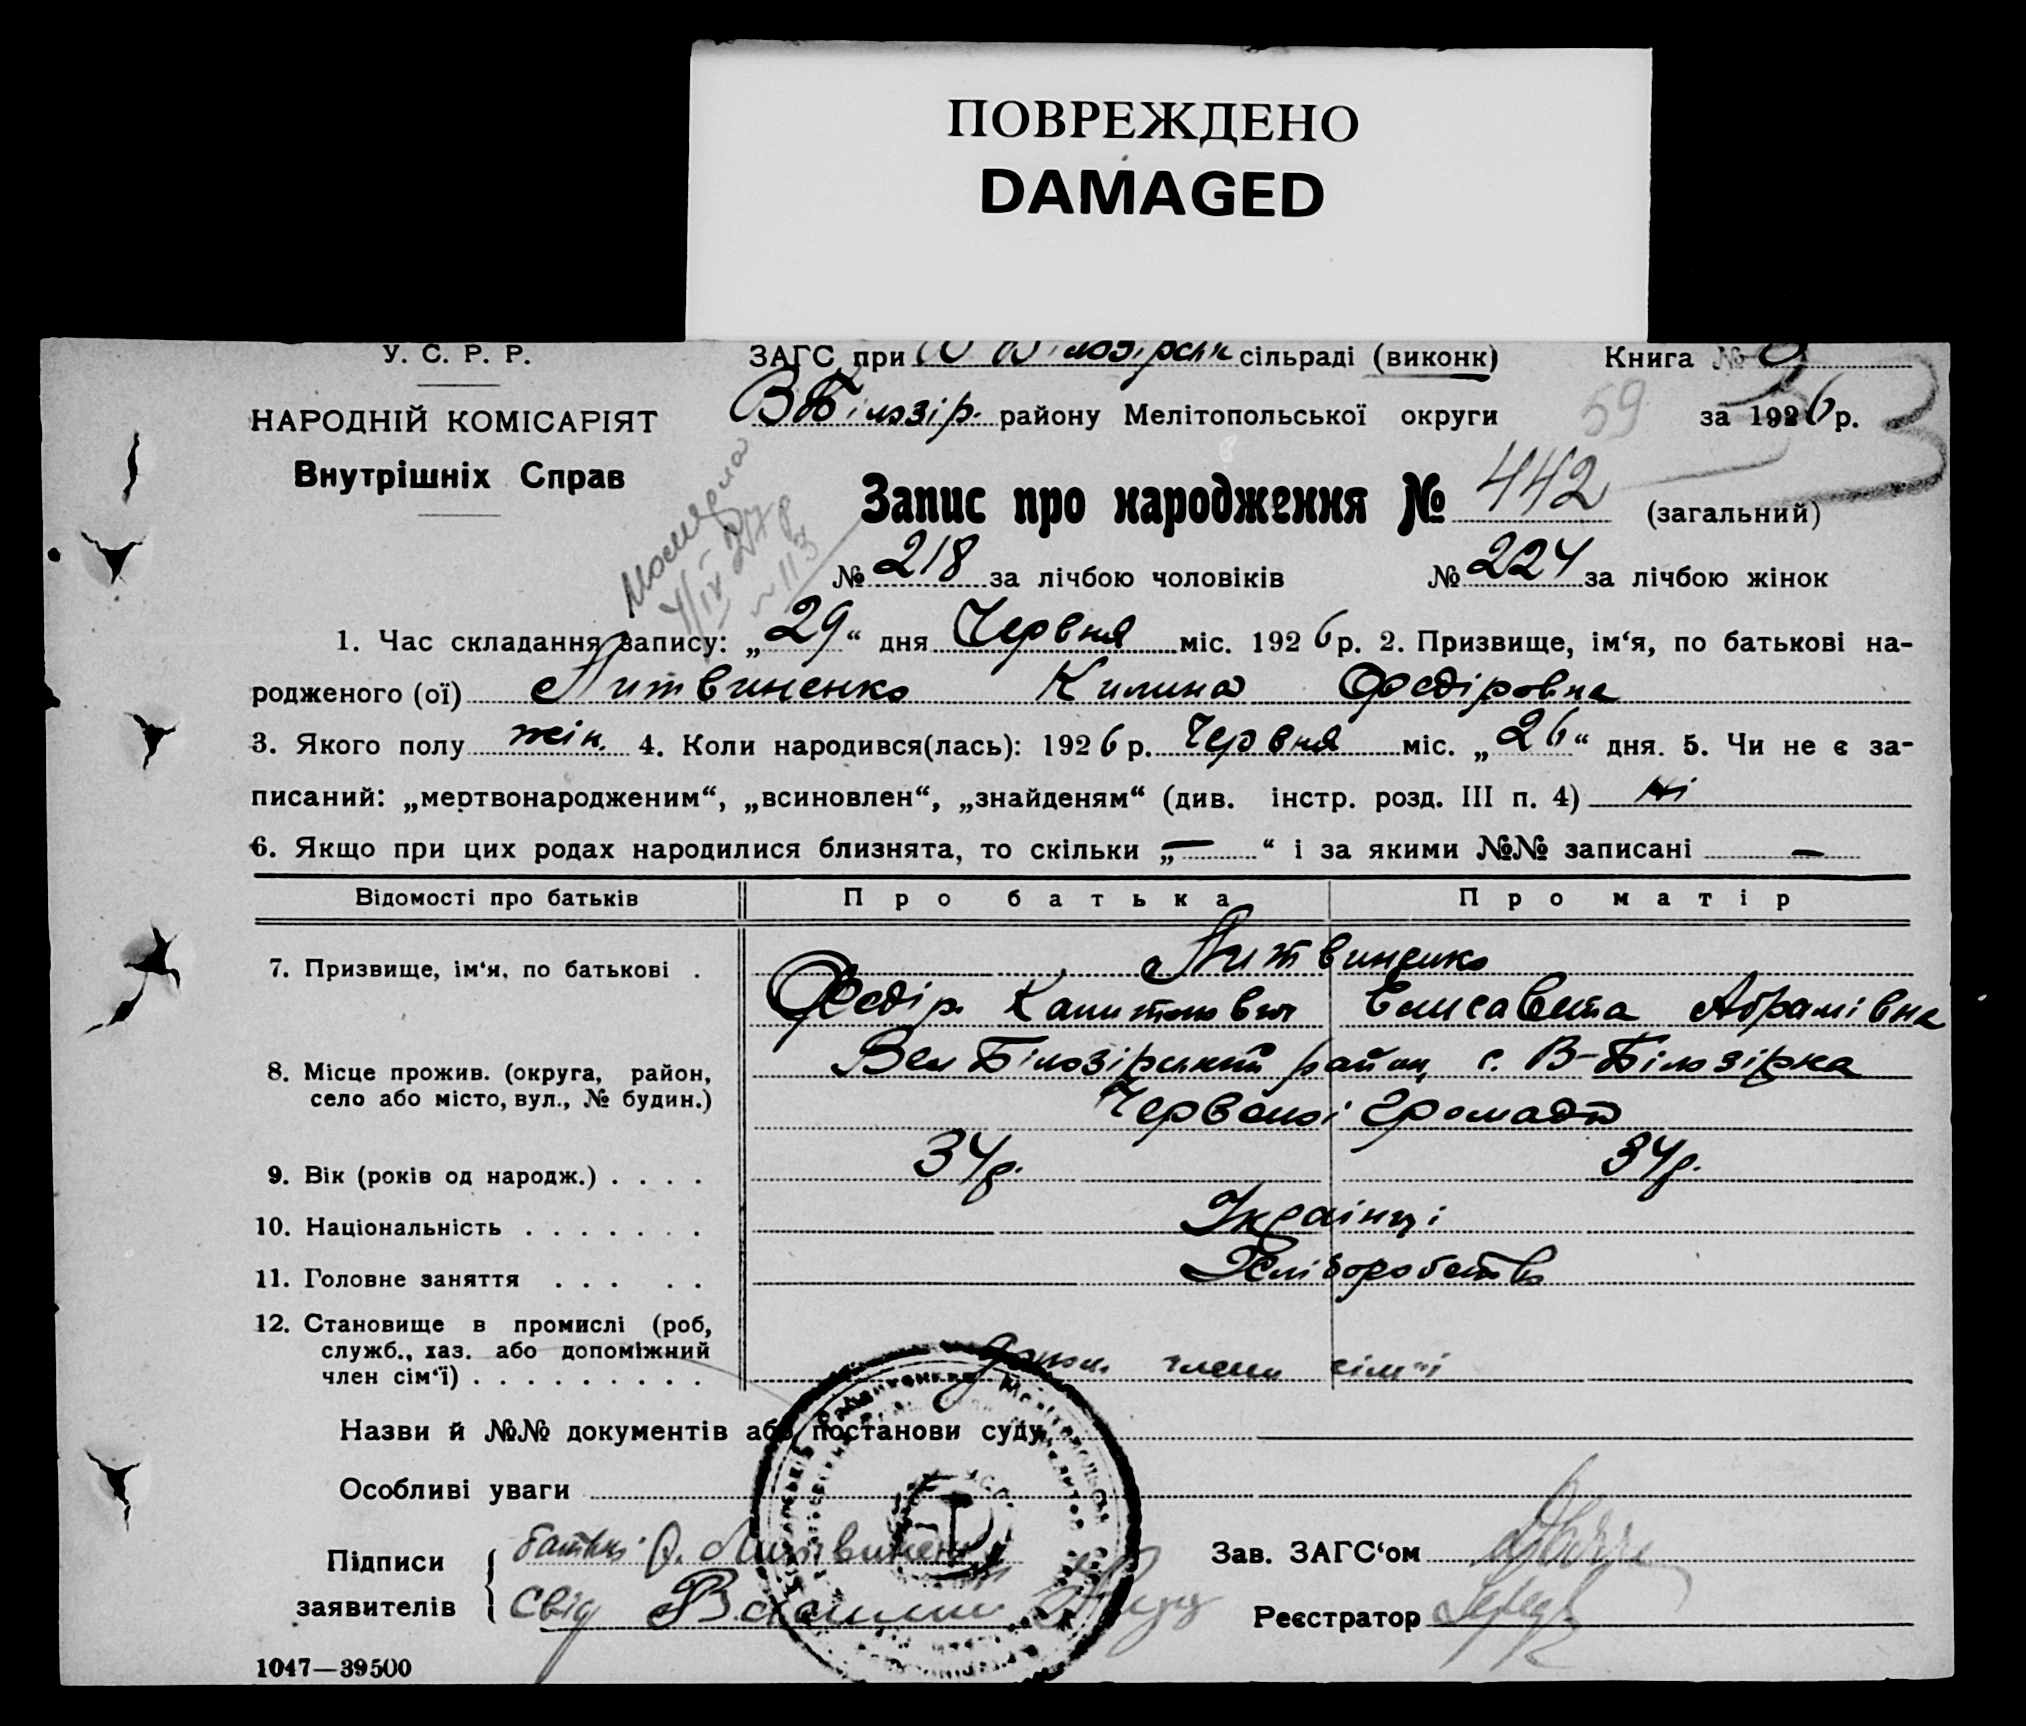 ПОВРЕЖДЕНО
DAMAGED
У. С. Р. Р.
ЗАГС при В Білозірськ сільраді (виконк) Книга №
НАРОДНІЙ КОМІСАРІЯТ
В Білозір. району Мелітопольської округи 59 за 1926 р.
Внутрішніх Справ
Запис про народження № 442 (загальний)
померла
7/IV 27 р
№ 113
№ 218 за лічбою чоловіків № 224 за лічбою жінок
1. Час складання запису: „29“ дня Червня міс. 1926 р. 2. Призвище, ім‘я, по батькові на-
родженого (ої) Литвиненко Килина Федіровна
3. Якого полу жін. 4. Коли народився(лась): 1926 р. Червня міс. „26“ дня. 5. Чи не є за-
писаний: „мертвонародженим“, „всиновлен“, „знайденям“ (див. інстр. розд. III п. 4) ні
6. Якщо при цих родах народилися близнята, то скільки „—“ і за якими №№ записані —
Відомості про батьків Про батька Про матір
7. Призвище, ім‘я, по батькові . Литвиненко
Федір Капитонович Єлисавета Абрамівна
8. Місце прожив. (округа, район, Вел Білозірський район, с. В-Білозірка
село або місто, вул., № будин.)
Червоної Громади
9. Вік (років од народж.) . . . . 34 р. 34 р.
10. Національність . . . . . . . Українці
11. Головне заняття . . . . . Хліборобство
12. Становище в промислі (роб,
служб., хаз. або допоміжний
член сім‘ї) . . . . . . . . . допом. члени сім‘ї
Назви й №№ документів або постанови суду
Особливі уваги
Підписи батько Ф. Литвинен Зав. ЗАГС‘ом
заявителів свід Реєстратор
1047—39500